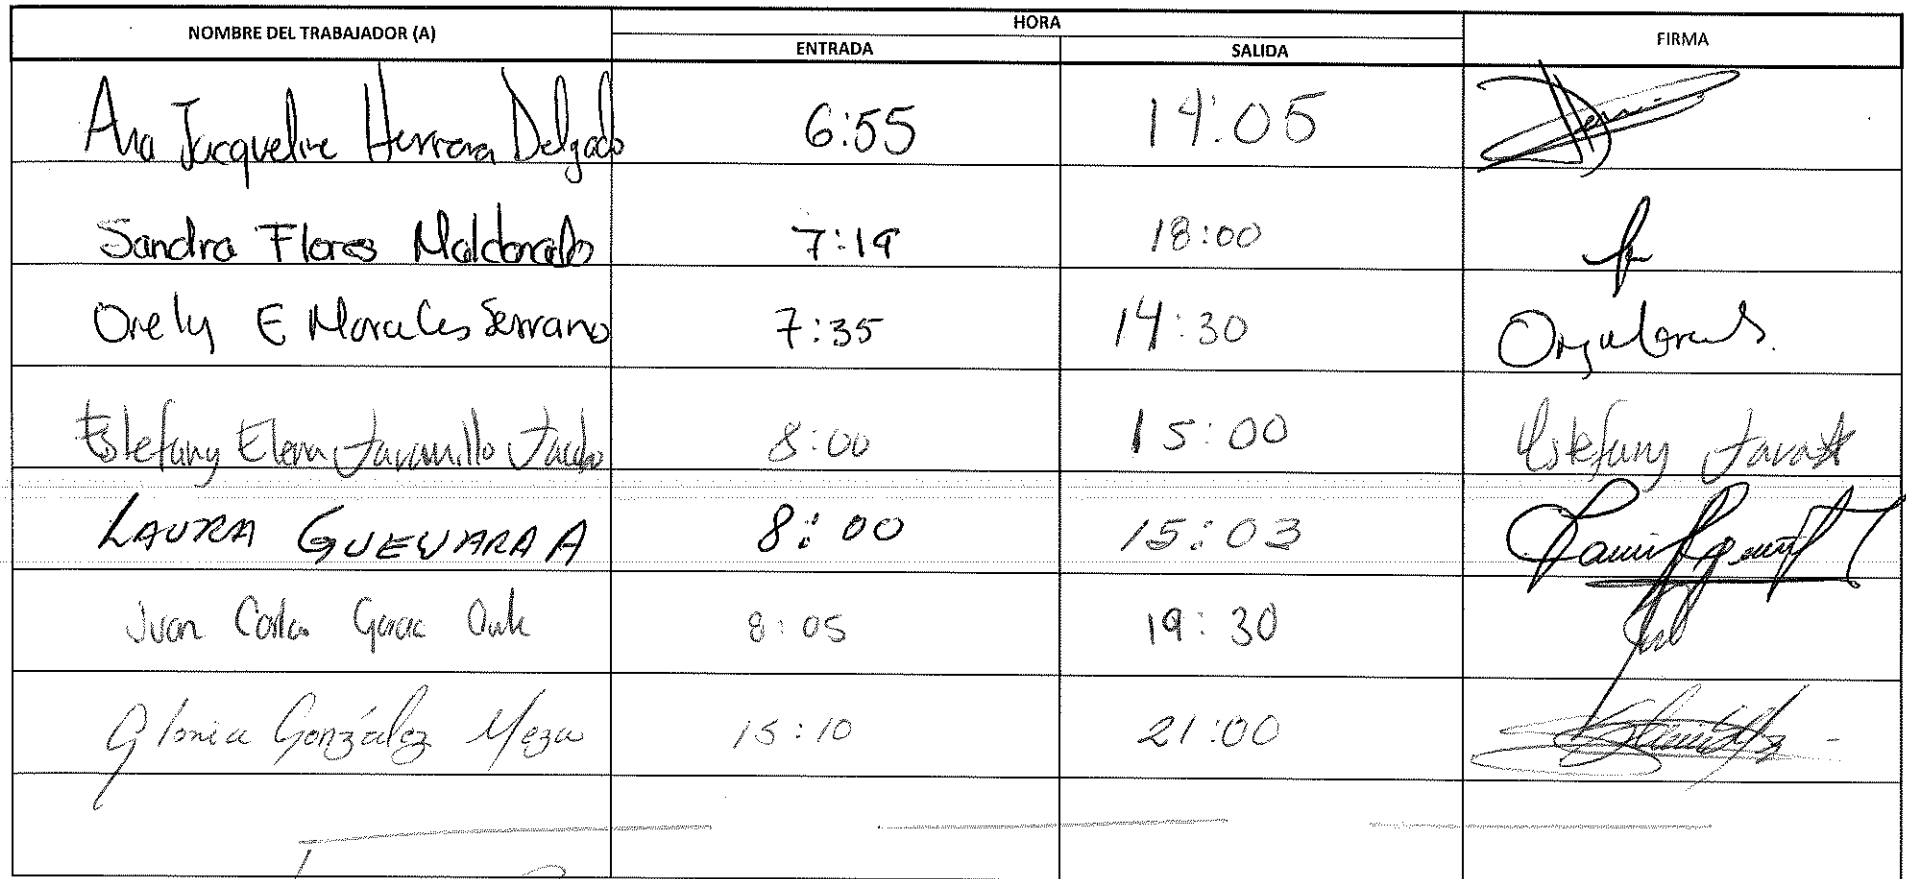 NOMBRE DEL TRABAJADOR (A) HORA FIRMA
ENTRADA SALIDA
Ana Jacqueline Herrera Delgado 6:55 14:05
Sandra Flores Maldonado 7:19 18:00
Orely E Morales Serrano 7:35 14:30
Estefany Elena Jaramillo 8:00 15:00 Estefany
LAURA GUEVARA A 8:00 15:03
Juan Carlos 8:05 19:30
Gloria González Meza 15:10 21:00